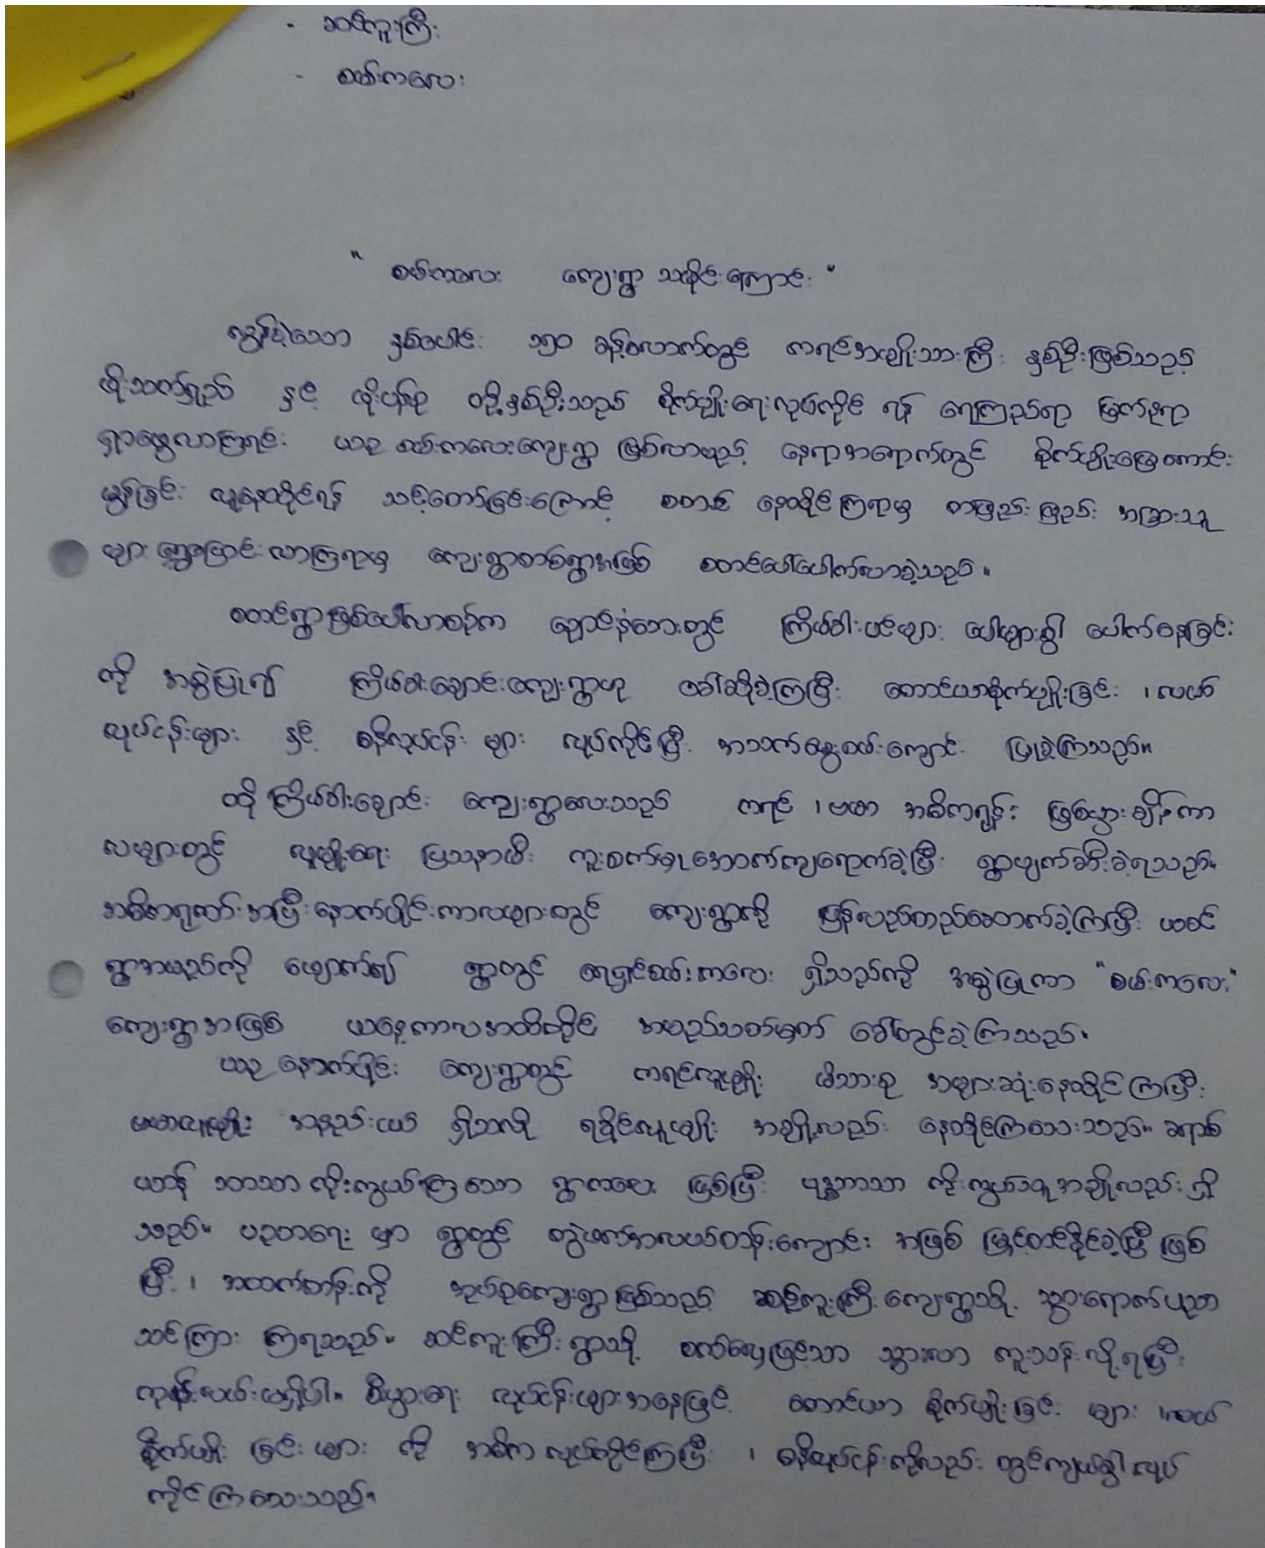 - ဆင်ကူးကြီး
- စမ်းကလေး
" စမ်းကလေး ကျေးရွာ သမိုင်းကြောင်း "
လွန်ခဲ့သော နှစ်ပေါင်း ၁၅၀ ခန့်လောက်တွင် ကရင်အမျိုးသားကြီး နှစ်ဦးဖြစ်သည့်
ဖိုးသက်ရှည် နှင့် ဖိုးပုန်းစု တို့နှစ်ဦးသည် စိုက်ပျိုးရေးလုပ်ကိုင် ရန် ရေကြည်ရာ မြက်နုရာ
ရှာဖွေလာကြရင်း ယခု စမ်းကလေးကျေးရွာ ဖြစ်လာမည့် နေရာအရောက်တွင် စိုက်ပျိုးမြေကောင်း
မွန်ခြင်း လူနေထိုင်ရန် သင့်တော်ခြင်းကြောင့် စတင် နေထိုင်ကြရာမှ တဖြည်းဖြည်း အခြားသူ
များ ရွှေ့ပြောင်းလာကြရာမှ ကျေးရွာတစ်ရွာအဖြစ် စတင်ပေါ်ပေါက်လာခဲ့သည်။
စတင်ရွာဖြစ်ပေါ်လာစဉ်က ချောင်နံဘေးတွင် ကြိမ်ခါးပင်များ ပေါများစွာ ပေါက်နေခြင်း
ကို အစွဲပြု၍ ကြိမ်ခါးချောင်းကျေးရွာဟု ခေါ်ဆိုခဲ့ကြပြီး တောင်ယာစိုက်ပျိုးခြင်း ၊ လယ်
လုပ်ငန်းများ နှင့် ဓနိလုပ်ငန်း များ လုပ်ကိုင်ပြီး အသက်မွေးဝမ်းကျောင်း ပြုခဲ့ကြသည်။
ထို ကြိမ်ခါးချောင်း ကျေးရွာလေးသည် ကရင် ၊ ဗမာ အဓိကရုဏ်း ဖြစ်ပွားချိန်ကာ
လများတွင် လူမျိုးရေး ပြသနာမီး ကူးစက်မှုအောက်ကျရောက်ခဲ့ပြီး ရွာပျက်ဆီးခဲ့ရသည်။
အဓိကရုဏ်းအပြီးနောက်ပိုင်းကာလများတွင် ကျေးရွာကို ပြန်လည်တည်ဆောက်ခဲ့ကြပြီး ယခင်
ရွာအမည်ကို ဖျောက်၍ ရွာတွင် ရေရှင်စမ်းကလေး ရှိသည်ကို အစွဲပြုကာ "စမ်းကလေး"
ကျေးရွာအဖြစ် ယနေ့ကာလအထိတိုင် အမည်သတ်မှတ် ခေါ်တွင်ခဲ့ကြသည်။
ယခု နောက်ပိုင်း ကျေးရွာတွင် ကရင်လူမျိုး မိသားစု အများဆုံးနေထိုင်ကြပြီး
ဗမာလူမျိုး အနည်းငယ် ရှိသလို ရခိုင်လူမျိုး အချို့လည်း နေထိုင်ကြသေးသည်။ ခရစ်
ယာန် ဘာသာ ကိုးကွယ်ကြသော ရွာကလေး ဖြစ်ပြီး ဗုဒ္ဓဘာသာ ကိုးကွယ်သူအချို့လည်းရှိ
သည်။ ပညာရေး မှာ ရွာတွင် တွဲဖက်အလယ်တန်းကျောင်း အဖြစ် မြှင့်တင်နိုင်ခဲ့ပြီ ဖြစ်
ပြီး ၊ အထက်တန်းကို အုပ်စုကျေးရွာဖြစ်သည့် ဆင်ကူးကြီးကျေးရွာသို့ သွားရောက်ပညာ
သင်ကြား ကြရသည်။ ဆင်ကူးကြီးရွာသို့ စက်လှေဖြင့်သာ သွားလာ ကူးသန်းလို့ရပြီး
ကုန်းလမ်းမရှိပါ။ စီးပွားရေး လုပ်ငန်းများအနေဖြင့် တောင်ယာ စိုက်ပျိုးခြင်း များ ၊ လယ်
စိုက်ပျိုး ခြင်းများ ကို အဓိက လုပ်ကိုင်ကြပြီး ၊ ဓနိလုပ်ငန်းကိုလည်း တွင်ကျယ်စွာ လုပ်
ကိုင်ကြသေးသည်။